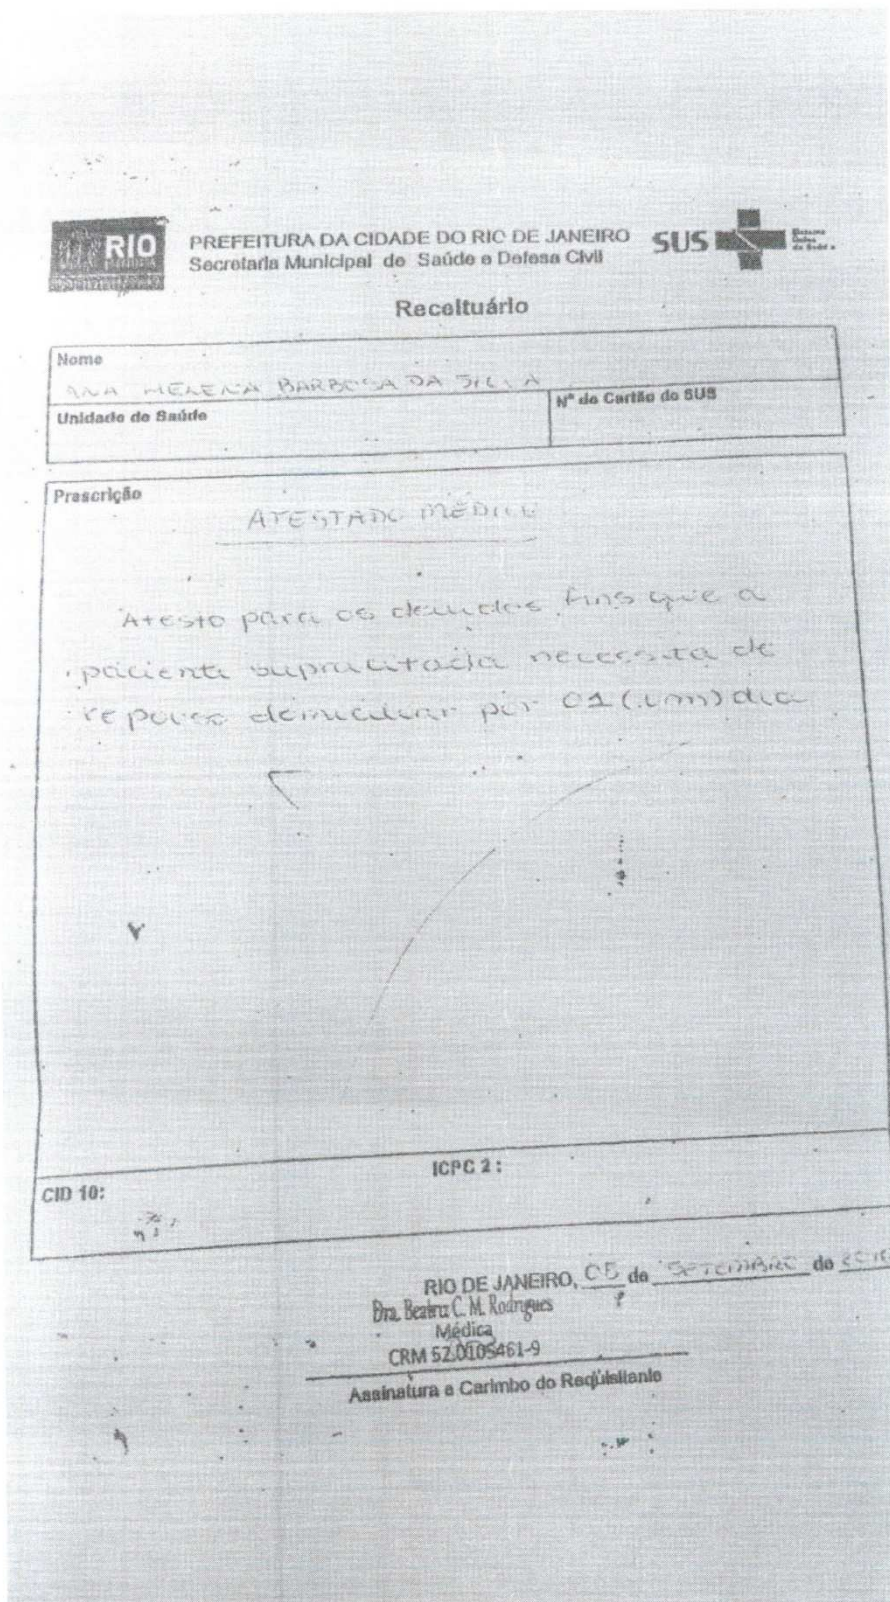 RIO
PREFEITURA DA CIDADE DO RIO DE JANEIRO
Secretaria Municipal de Saúde e Defesa Civil
SUS
Receituário
Nome
ANA HELENA BARBOSA DA SILVA
Unidade de Saúde
Nº do Cartão do SUS
Prescrição
ATESTADO MÉDICO
Atesto para os devidos fins que a
paciente supracitada necessita de
repouso domiciliar por 01 (um) dia
CID 10:
ICPC 2 :
RIO DE JANEIRO, 05 de SETEMBRO de
Dra. Beatriz C. M. Rodrigues
Médica
CRM 52.0105461-9
Assinatura e Carimbo do Requisitante